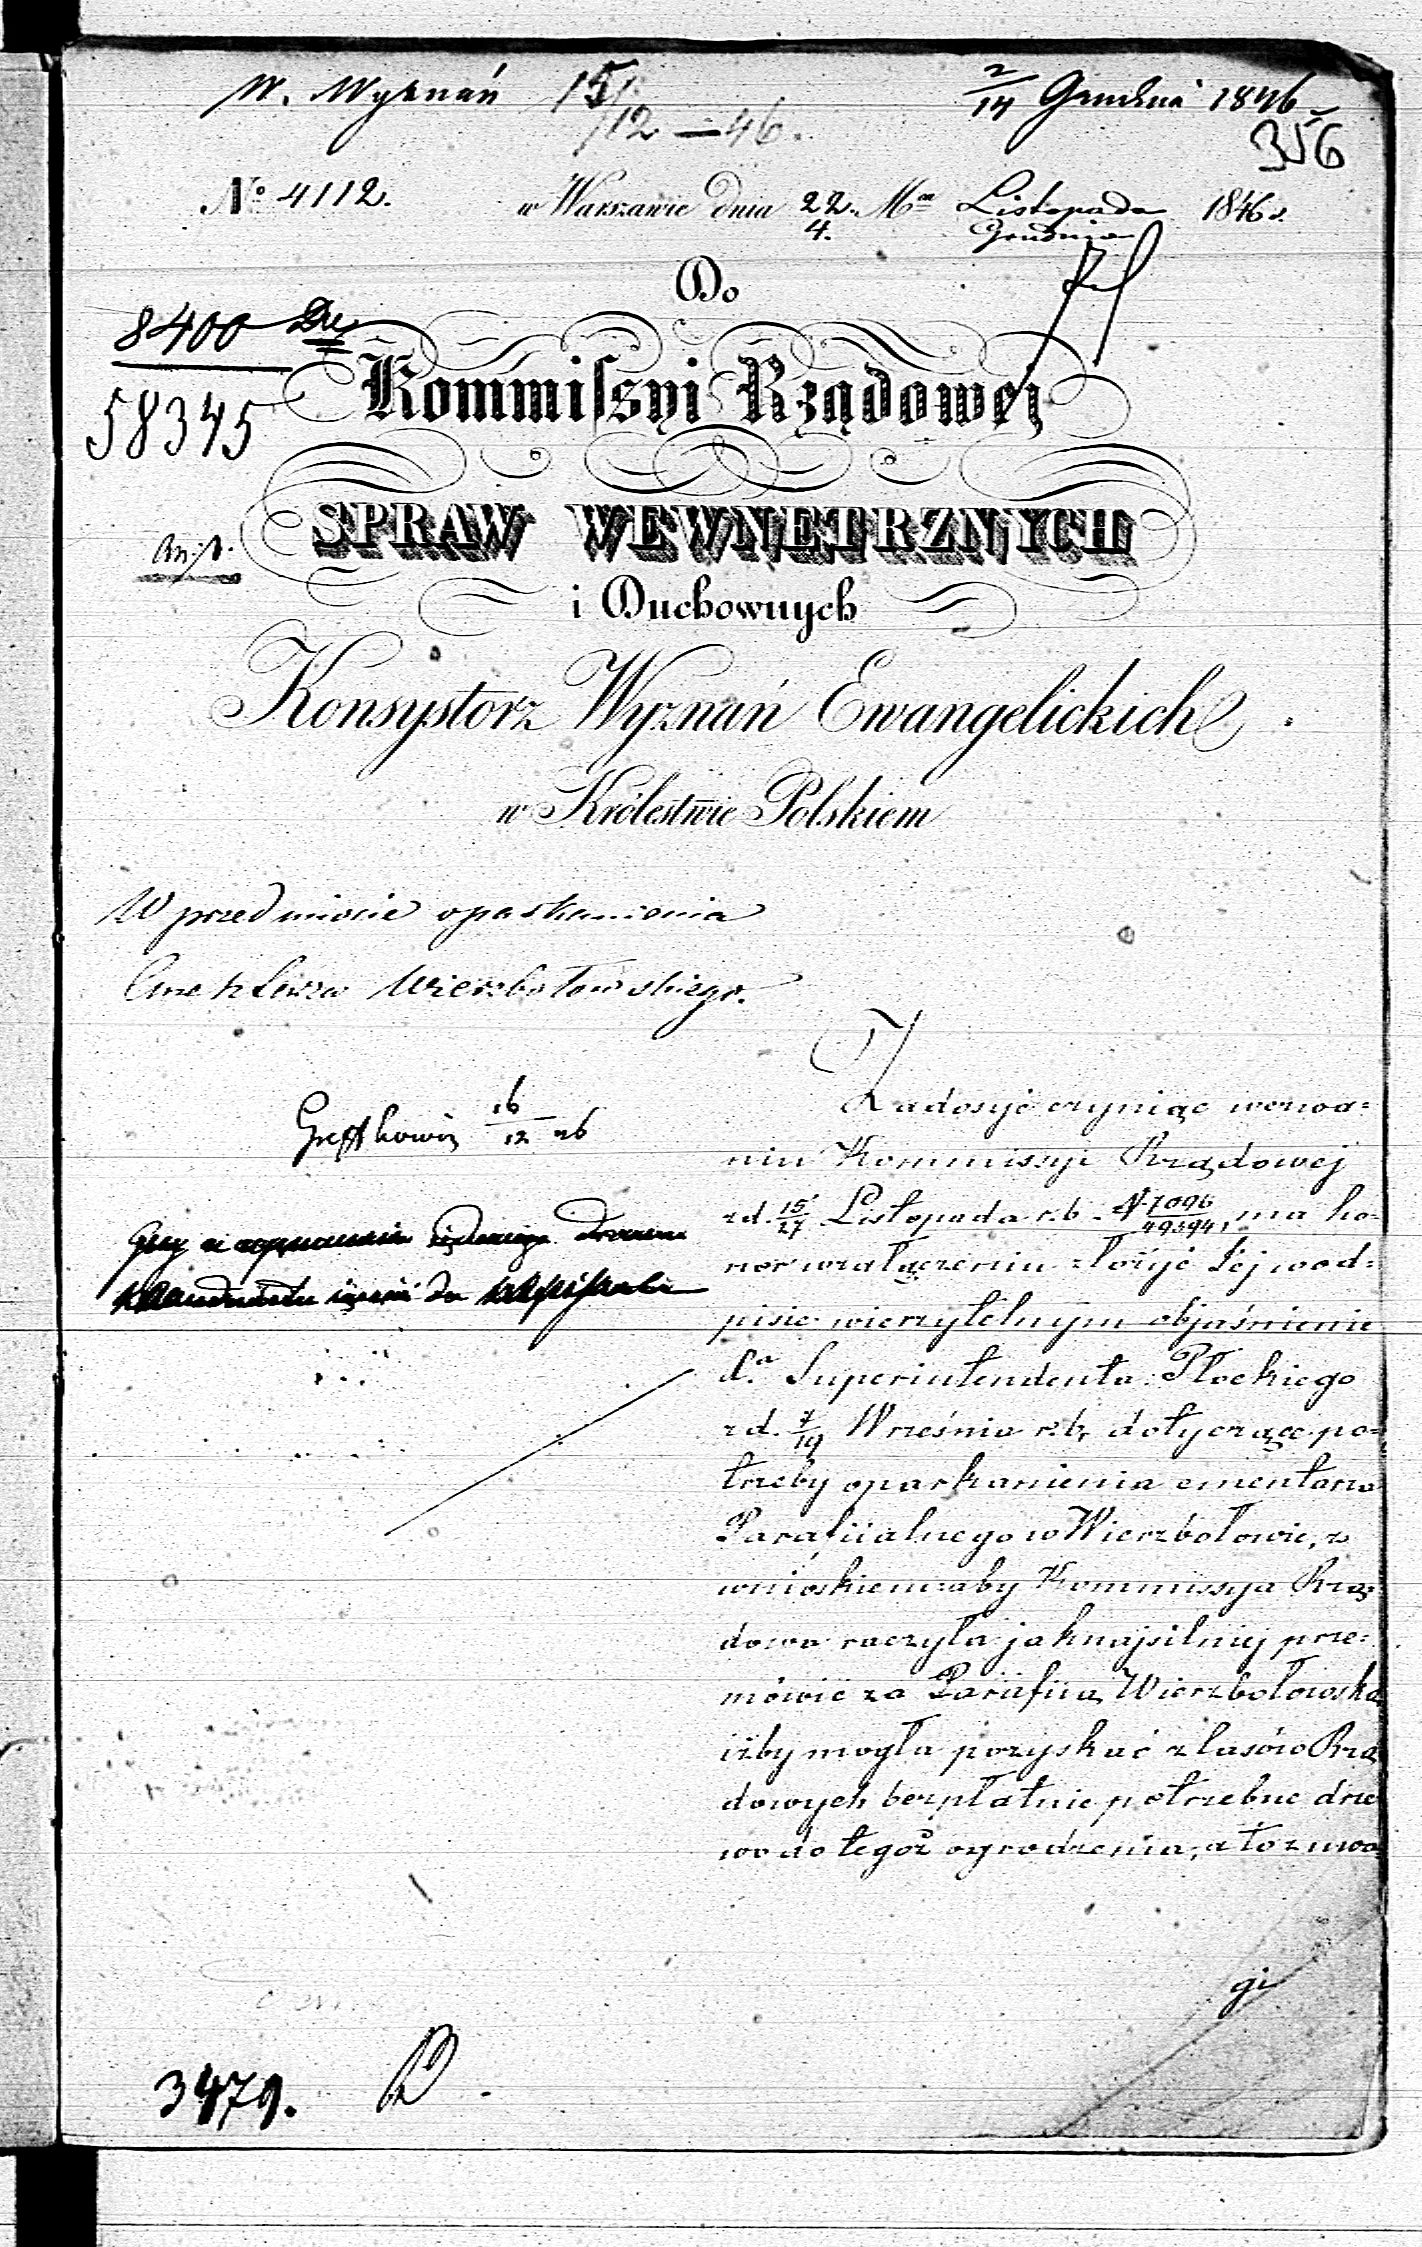 W. Wyznań 15/12 — 46.
2/14 Grudnia 1846
356
No 4112. w Warszawie dnia 22. Listopada 1846 r.
4. Grudnia
Do
8400
58345
Kommissyi Rządowej
SPRAW WEWNETRZNYCH
i Duchownych
Konsystorz Wyznań Ewangelickich
w Królestwie Polskiem
W przedmiocie oparkanienia
Cmentarza Wierzbołowskiego.
16/12 46
Zadosyć czyniąc wezwa=
niu Kommissyi Rządowej
z d. 15/27 Listopada r. b. N 7096/49394, ma ho=
nor w załączeniu złożyć Jej w od=
pisie wierzytelnym objaśnienie
Superintendenta Płockiego
z d. 7/19 Września r. b. dotyczące po=
trzeby oparkanienia cmentarza
Parafiialnego w Wierzbołowie, z
wnioskiem aby Kommissya Rzą=
dowa raczyła jaknajsilniej prze=
mówić za Parafiią Wierzbołowską
iżby mogła pozyskać z lasów Rzą
dowych bezpłatnie potrzebne drze
wo do tegoż ogrodzenia, a to z uwa=
gi
3479.